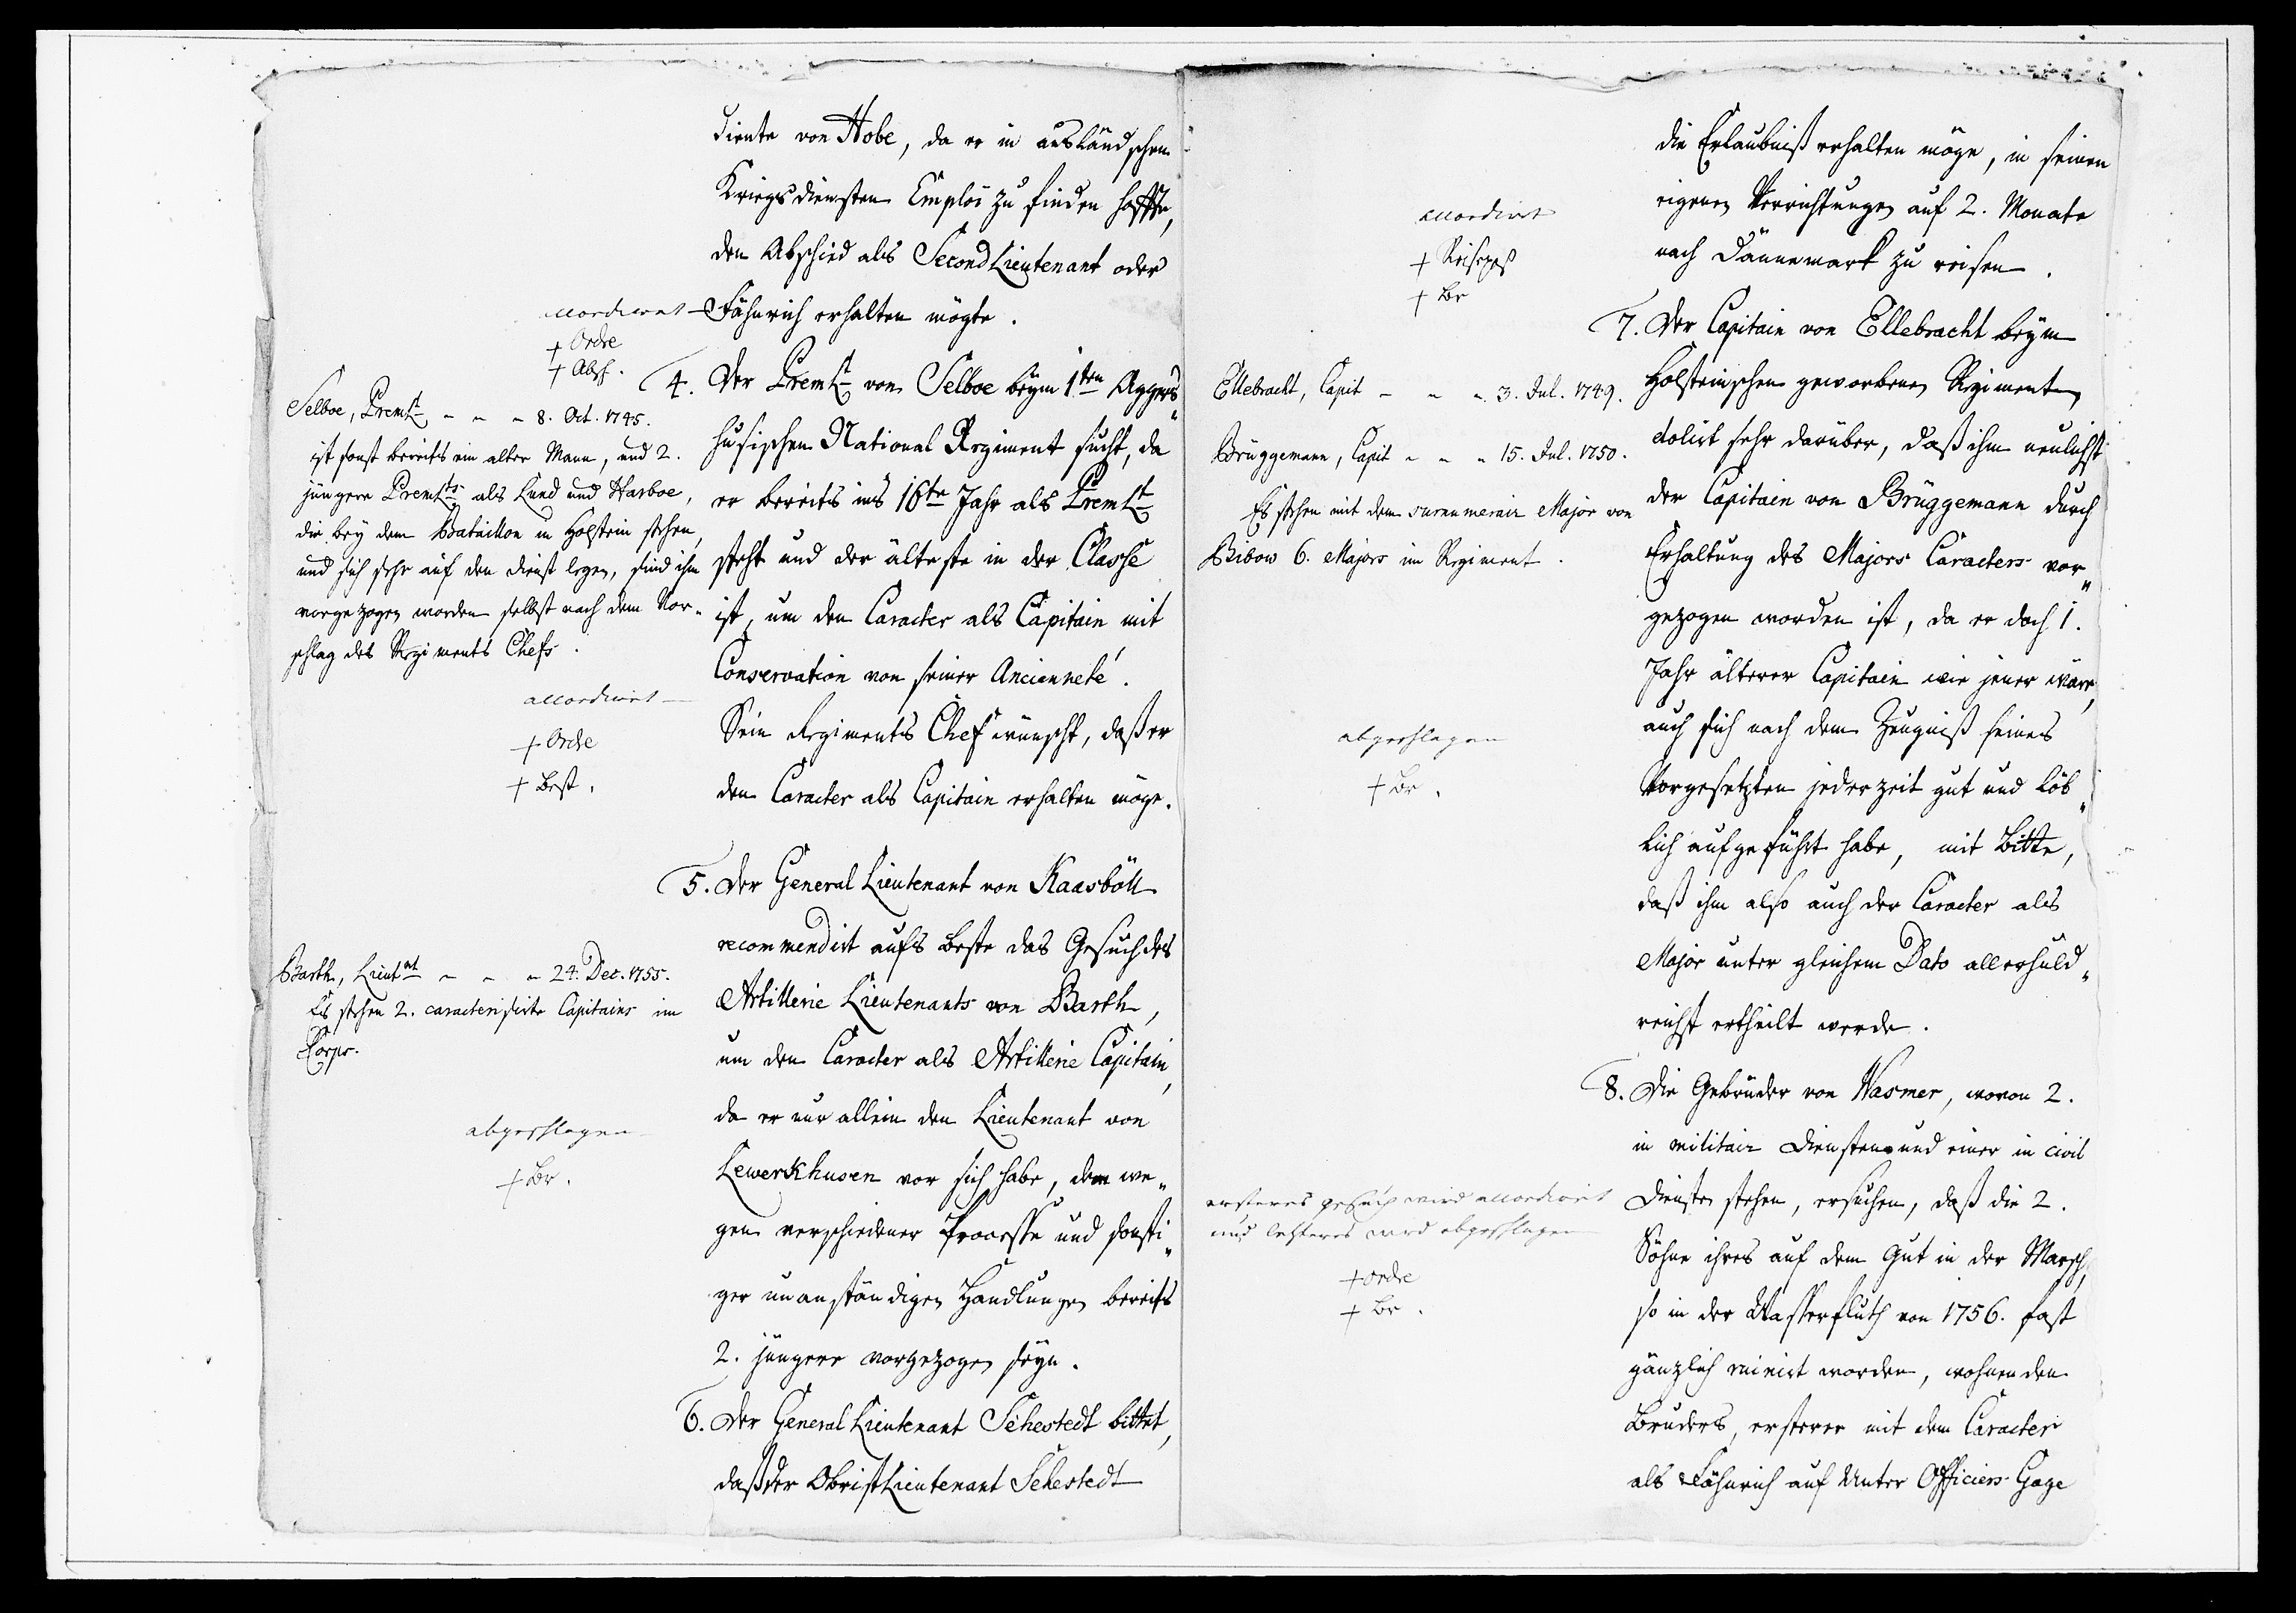 diente von Hobe, da er in ausländschen
Kriegsdiensten Emploi zu finden hoffte,
den Abschied als SecondLieutenant oder
Fähnrich erhalten mögte.
accordiret
+ Ordre
+ Absch.
4. Der PremLt von Selboe beym 1ten Aggers„
husischen National Regiment sucht, da
er bereits ins 16te Jahr als PremLt
steht und der älteste in der Classe
ist, um den Caracter als Capitain mit
Conservation von seiner Ancienneté.
Sein Regiments Chef wünscht, daß er
den Caracter als Capitain erhalten möge.
Selboe, PremLt - - - 8. Oct. 1745.
ist sonst bereits ein alter Mann, und 2.
jüngere PremLts als Lund und Harboe,
die bey dem Bataillon in Holstein stehen,
und sich sehr auf den Dienst legen, sind ihm
vorgezogen worden selbst nach dem Vor„
schlag des Regiments Chefs.
accordiret
+ Ordre
+ Best.
5. Der General Lieutenant von Kaasböll
recommendirt aufs beste das Gesuch des
Artillerie Lieutenants von Barth,
um den Caracter als Artillerie Capitain,
da er nur allein den Lieutenant von
Lewerkhusen vor sich habe, dem we„
gen verschiedener Processe und sonsti„
ger unanständigen Handlungen bereits
2. jüngere vorgezogen seyn.
Barth, Lieutnt - - - 24. Dec. 1755.
Es stehen 2. caracterisirte Capitains im
Corps.
abgeschlagen
+ Br.
6. Der General Lieutenant Sehestedt bittet,
daß der ObristLieutenant Sehestedt
die Erlaubniß erhalten möge, in seinen
eigenen Verrichtungen auf 2. Monate
nach Dännemark zu reisen.
accordiret
+ Reisepaß
+ Br
7. Der Capitain von Ellebracht beym
Holsteinschen geworbenen Regimente,
dolirt sehr darüber, daß ihm neulichst
der Capitain von Brüggemann durch
Erhaltung des Majors Caracters vor„
gezogen worden ist, da er doch 1.
Jahr älterer Capitain wie jener wäre,
auch sich nach dem Zeugniß seiner
Vorgesetzten jederzeit gut und löb„
lich aufgeführt habe, mit Bitte,
daß ihm also auch der Caracter als
Major unter gleichem Dato allerhuld„
reichst ertheilt werde.
Ellebracht, Capit - - - 3. Jul. 1749.
Brüggemann, Capit - - - 15. Jul. 1750.
Es stehen mit dem surnumerair Major von
Bibow 6. Majors im Regiment.
abgeschlagen
+ Br.
8. Die Gebrüder von Wasmer, wovon 2.
in militair Diensten und einer in civil
Dienste stehen, ersuchen, daß die 2.
Söhne ihres auf dem Gut in der Marsch,
so in der Wasserfluth von 1756. fast
gänzlich ruinirt worden, wohnenden
Bruders, ersterer mit dem Caracter
als Fähnrich auf Unter Officiers Gage
ersteres gesuch wird accordiret
und letzteres wird abgeschlagen
+ Ordre
+ Br.